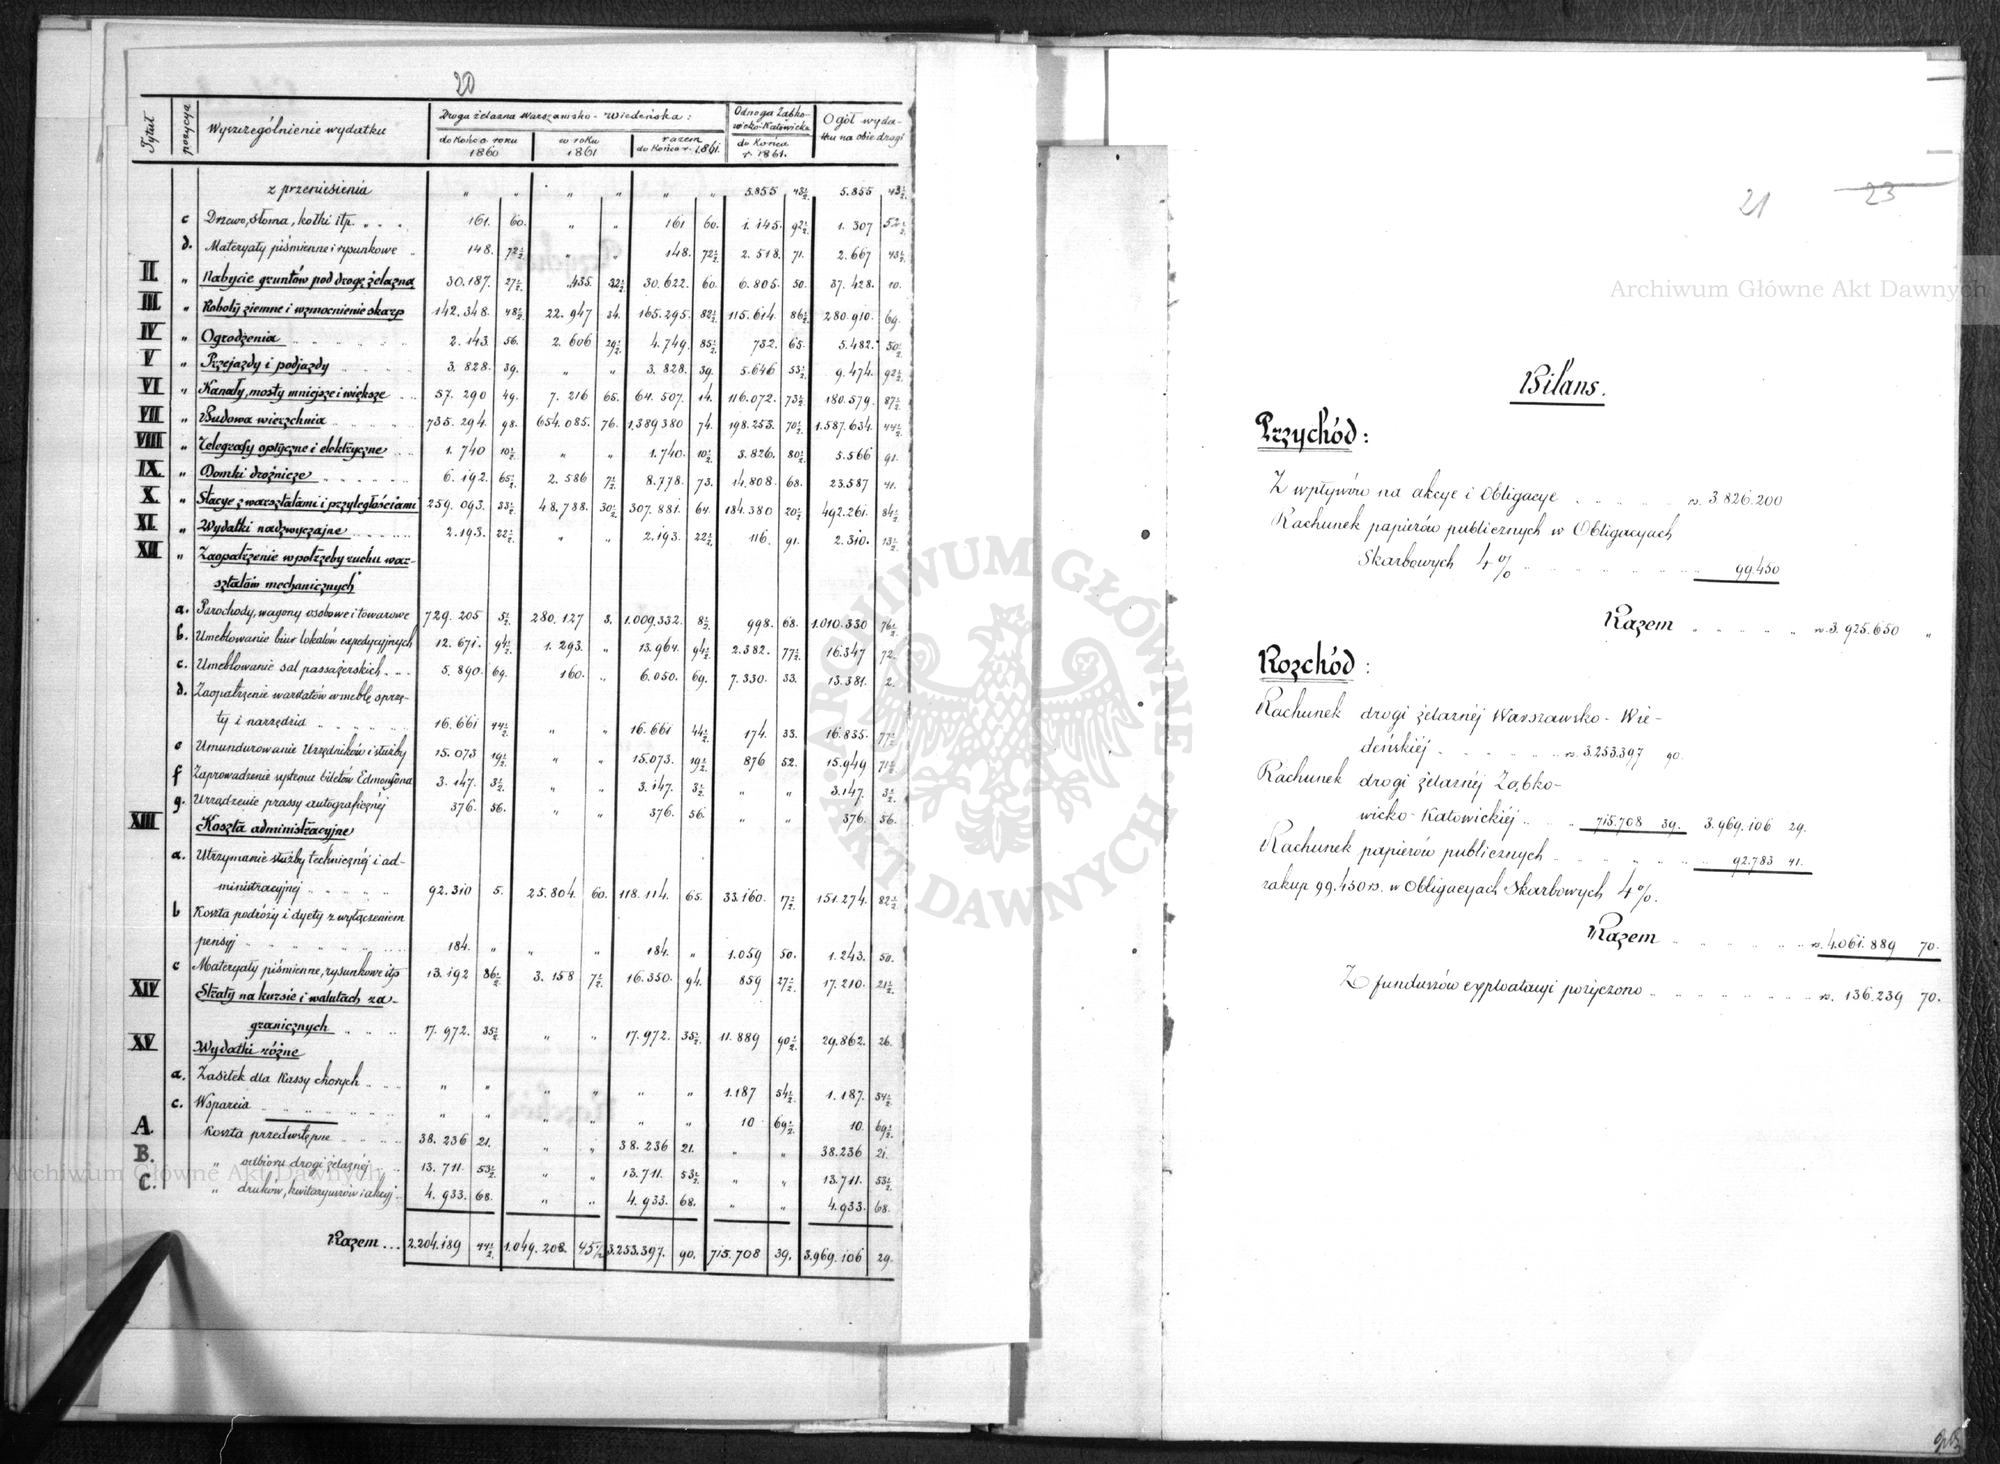 20
Tytuł pozycya Wyszczególnienie wydatku Droga żelazna Warszawsko-Wiedeńska: Odnoga Ząbkowicko-Katowicka do końca r. 1861. Ogół wydatku na obie drogi
do końca roku 1860 w roku 1861 razem do końca r. 1861.
z przeniesienia " " " " " " 5.855 43½ 5.855 43½
c Drzewo, słoma, kołki itp. . . . 161. 60. " " 161 60. 1.145. 92½ 1.307 52½
d. Materyały piśmienne i rysunkowe . 148. 72½ " " 148. 72½ 2.518. 71. 2.667 43½
II " Nabycie gruntów pod drogę żelazną 30.187. 27½ 435. 32½ 30.622. 60. 6.805. 50. 37.428. 10.
III " Roboty ziemne i wzmocnienie skarp 142.348. 48½ 22.947 34. 165.295. 82½ 115.614. 86½ 280.910. 69.
IV " Ogrodzenia 2.143. 56. 2.606 29½ 4.749. 85½ 732. 65. 5.482. 50½
V " Przejazdy i podjazdy 3.828. 39. " " 3.828. 39. 5.646 53½ 9.474. 92½
VI " Kanały, mosty mniejsze i większe 57.290 49. 7.216 65. 64.507. 14. 116.072. 73½ 180.579. 87½
VII " Budowa wierzchnia 735.294. 98. 654.085. 76. 1.389.380 74. 198.253. 70½ 1.587.634. 44½
VIII " Telegrafy optyczne i elektryczne 1.740 10½ " " 1.740. 10½ 3.826. 80½ 5.566 91.
IX. " Domki drożnicze 6.192. 65½ 2.586 7½ 8.778. 73. 14.808. 68. 23.587 41.
X. " Stacye z warsztatami i przyległościami 259.093. 33½ 48.788. 30½ 307.881. 64. 184.380 20½ 492.261. 84½
XI. " Wydatki nadzwyczajne 2.193. 22½ " " 2.193. 22½ 116. 91. 2.310. 13½
XII " Zaopatrzenie w potrzeby ruchu war-
sztatów mechanicznych
a. Parochody, wagony osobowe i towarowe 729.205 5½ 280.127 3. 1.009.332. 8½ 998. 68. 1.010.330 76½
b. Umeblowanie biur lokalów expedycyjnych 12.671. 94½ 1.293. " 13.964. 94½ 2.382. 77½ 16.347 72.
c. Umeblowanie sal pasażerskich . . . 5.890. 69. 160. " 6.050. 69. 7.330 33. 13.381. 2.
d. Zaopatrzenie warstatów w meble, sprzę-
ty i narzędzia 16.661 44½ " " 16.661 44½ 174. 33. 16.835. 77½
e Umundurowanie Urzędników i służby 15.073 19½ " " 15.073. 19½ 876 52. 15.949 71½
f Zaprowadzenie systemu biletów Edmonsona 3.147. 3½ " " 3.147. 3½ " " 3.147. 3½
g. Urządzenie prassy autograficznéj 376. 56. " " 376. 56. " " 376. 56.
XIII Koszta administracyjne
a. Utrzymanie służby technicznéj i ad-
ministracyjnéj 92.310 5. 25.804. 60. 118.114. 65. 33.160. 17½ 151.274. 82½
b Koszta podróży i dyety z wyłączeniem
pensyj 184. " " " 184. " 1.059 50. 1.243. 50.
c Materyały piśmienne, rysunkowe itp 13.192 86½ 3.158 7½ 16.350. 94. 859 27½ 17.210. 21½
XIV Straty na kursie i walutach za-
granicznych 17.972. 35½ " " 17.972. 35½ 11.889 90½ 29.862. 26.
XV Wydatki różne
a. Zasiłek dla Kassy chorych " " " " " " 1.187 54½ 1.187. 54½
c. Wsparcia " " " " " " 10 69½ 10. 69½
A. Koszta przedwstępne 38.236 21. " " 38.236 21. " " 38.236 21.
B. " odbioru drogi żelaznéj 13.711. 53½ " " 13.711. 53½ " " 13.711. 53½
C. " druków, kwitaryuszów i akcyj 4.933. 68. " " 4.933. 68. " " 4.933. 68.
Razem ... 2.204.189 44½ 1.049.208. 45½ 3.253.397. 90. 715.708 39. 3.969.106 29.
21 23
Bilans.
Przychód:
Z wpływów na akcye i Obligacye rs. 3.826.200
Rachunek papierów publicznych w Obligacyach
Skarbowych 4% 99.450
Razem rs. 3.925.650 "
Rozchód:
Rachunek drogi żelaznéj Warszawsko-Wie-
deńskiéj rs. 3.253.397 90.
Rachunek drogi żelaznéj Ząbko-
wicko-Katowickiéj 715.708 39. 3.969.106 29.
Rachunek papierów publicznych 92.783 41.
zakup 99.450 rs. w Obligacyach Skarbowych 4%.
Razem rs. 4.061.889 70.
Z funduszów exploatacyi pożyczono rs. 136.239 70.
Archiwum Główne Akt Dawnych
Archiwum Główne Akt Dawnych
ARCHIWUM GŁÓWNE AKT DAWNYCH